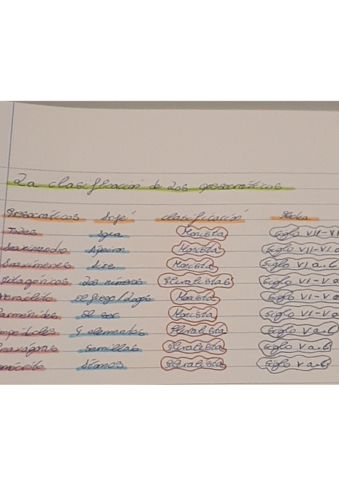 La clasificación de los presocráticos
Presocráticos Arjé clasificación fecha
Tales agua Monista siglo VII-VI a
Anaximandro Ápeiron Monista siglo VII-VI a
Anaxímenes Aire Monista siglo VI a.C
Pitagóricos los números Pluralistas siglo VI-V a
Heráclito el fuego/logos Monista siglo VI-V a
Parménides el ser Monista siglo VI-V a
Empédocles 4 elementos Pluralista siglo V a.C
Anaxágoras semillas Pluralista siglo V a.C
Demócrito Átomos Pluralista siglo V a.C